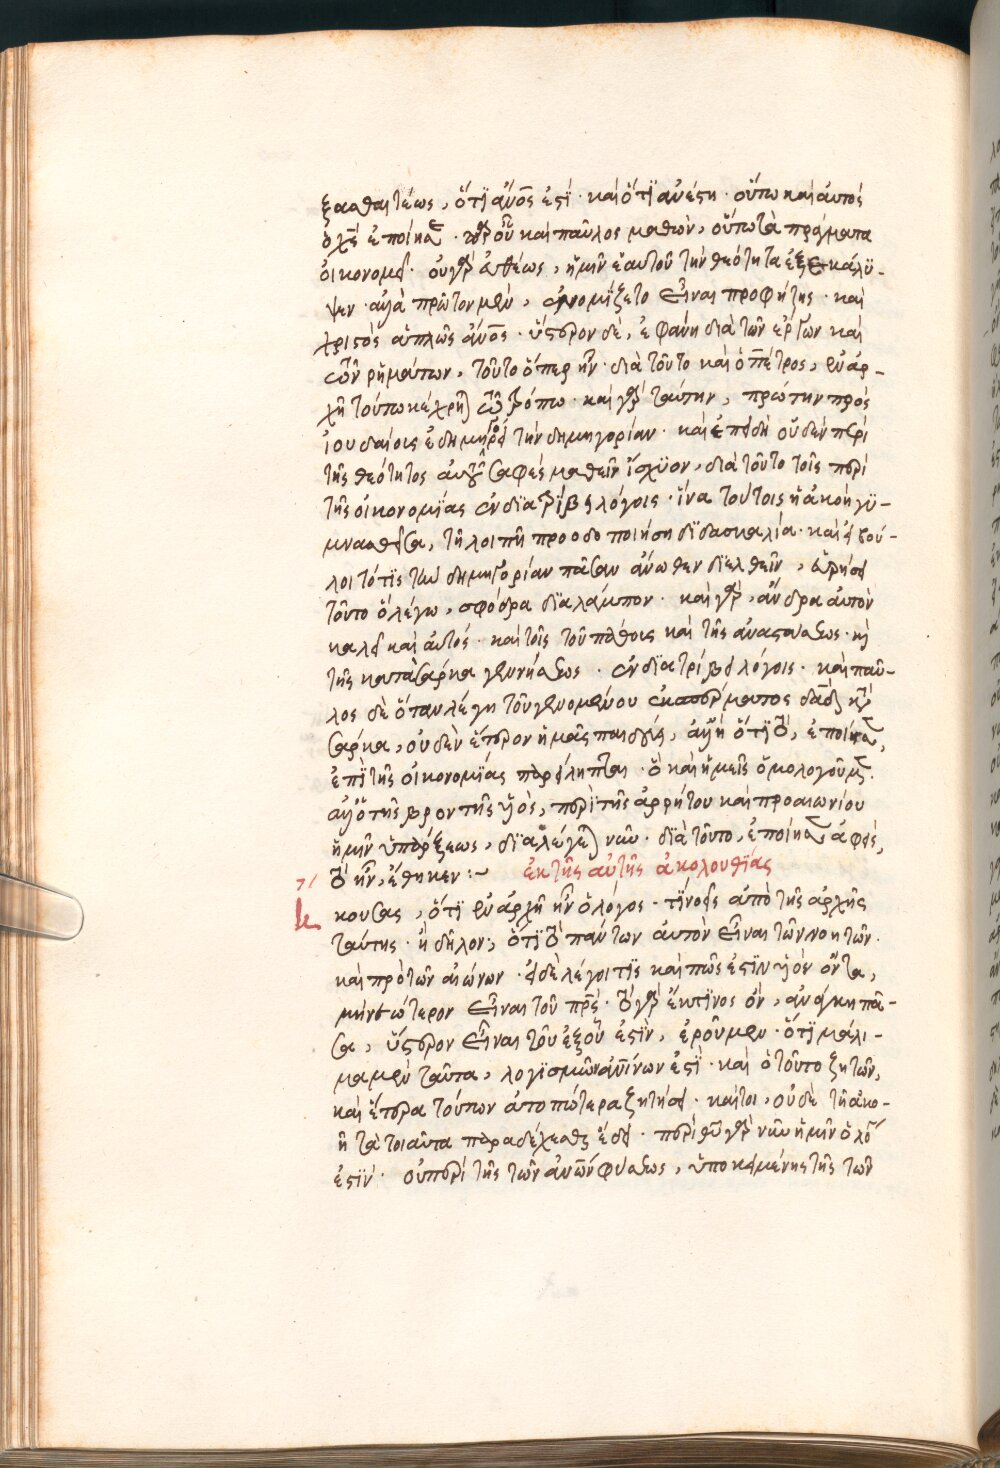 ξασθαι τέως, ὅτϊ ἄνο̅ς ἐστί· καὶ ὅτϊ ἀνέστη· οὕτω καὶ αὐτὸς
ὁ χ̅ς ἐποίησε· παρ' οὗ καὶ παῦλος μαθὼν, οὕτω τὰ πράγματα
οἰκονομεῖ· οὐ γὰρ εὐθέως, ἡμῖν ἑαυτοῦ τὴν θεότητα ἐξεκάλυ-
ψεν· ἀλλὰ πρῶτον μὲν, ἐνομίζετο εἶναι προφήτης· καὶ
χριστὸς ἁπλῶς ἄνο̅ς· ὕστερον δὲ, ἐφάνη διὰ τῶν ἔργων καὶ
τῶν ῥημάτων, τοῦτο ὅπερ ἦν· διὰ τοῦτο καὶ ὁ πέτρος, ἐν ἀρ-
χῇ τούτω κέχρηται τῶ τρόπω· καὶ γὰρ ταύτην, πρώτην πρὸς
ἰουδαίοις ἐδημηγόρει τὴν δημηγορίαν· καὶ ἐπειδὴ οὐδὲν περὶ
τῆς θεότητος αὐτοῦ σαφὲς μαθεῖν ἴσχϋον, διὰ τοῦτο τοῖς περὶ
τῆς οἰκονομίας ἐνδϊατρίβει λόγοις· ἵνα τούτοις ἡ ἀκοὴ γϋ-
μνασθεῖσα, τῆ λοιπῆ προοδοποιήση δϊδασκαλία· καὶ εἰ βού-
λοιτό τϊς τὴν δημηγορίαν πᾶσαν ἄνωθεν διελθεῖν, εὑρήσει
τοῦτο ὃ λέγω, σφόδρα δϊαλάμπον· καὶ γὰρ, ἄνδρα αὐτὸν
καλεῖ καὶ αὐτός· καὶ τοῖς τοῦ πάθους καὶ τῆς ἀναστάσεως· κ(αὶ)
τῆς κατὰ σάρκα γεννήσεως· ἐνδϊατρίβει λόγοις· καὶ παῦ-
λος δὲ ὅταν λέγη τοῦ γενομένου ἐκ σπέρματος δα̅δ κατὰ
σάρκα, οὐδὲν ἕτερον ἡμᾶς παιδεύει, ἀλλ' ἢ ὅτϊ τὸ, ἐποίησεν,
ἐπὶ τῆς οἰκονομίας παρείληπται· ὃ καὶ ἡμεῖς ὁμολογοῦμεν·
ἀλλ' ὁ τῆς βροντῆς υἱὸς, περὶ τῆς ἀρρήτου καὶ προαιωνίου
ἡμῖν ὑπάρξεως, δϊαλέγεται νῦν· δϊὰ τοῦτο, ἐποίησεν ἀφεὶς,
τὸ ἦν, ἔθηκεν:~ ἐκ τῆς αὐτῆς ἀκολουθίας
κουσας, ὅτϊ ἐν ἀρχῆ ἦν ὁ λόγος· τίνος ἀπὸ τῆς ἀρχῆς
ταύτης· ἢ δῆλον, ὅτϊ τὸ πάντων αὐτὸν εἶναι τῶν νοητῶν·
καὶ πρὸ τῶν αἰώνων· εἰ δὲ λέγοι τϊς καὶ πῶς ἐστϊν υἱὸν ὄντα,
μὴ νεώτερον εἶναι τοῦ πρς· τὸ γὰρ ἔκ τϊνος ὂν, ἀνάγκη πᾶ-
σα, ὕστερον εἶναι τοῦ ἐξ οὗ ἐστϊν, ἐροῦμεν· ὅτϊ μάλι-
μα μὲν ταῦτα, λογϊσμῶν ἀνίνων ἐστϊ· καὶ ὁ τοῦτο ζητῶν,
καὶ ἕτερα τούτων ἀτοπώτερα ζητήσει· καίτοι, οὐδὲ τῆ ἀκο-
ῆ τὰ τοιαῦτα παραδέχεσθαι ἔδει· περὶ θ̅υ γὰρ νῦν ἡμῖν ὁ λόγος
ἐστϊν· οὐ περὶ τῆς τῶν ἀν̅ων φύσεως, ὑποκειμένης τῆς τῶν